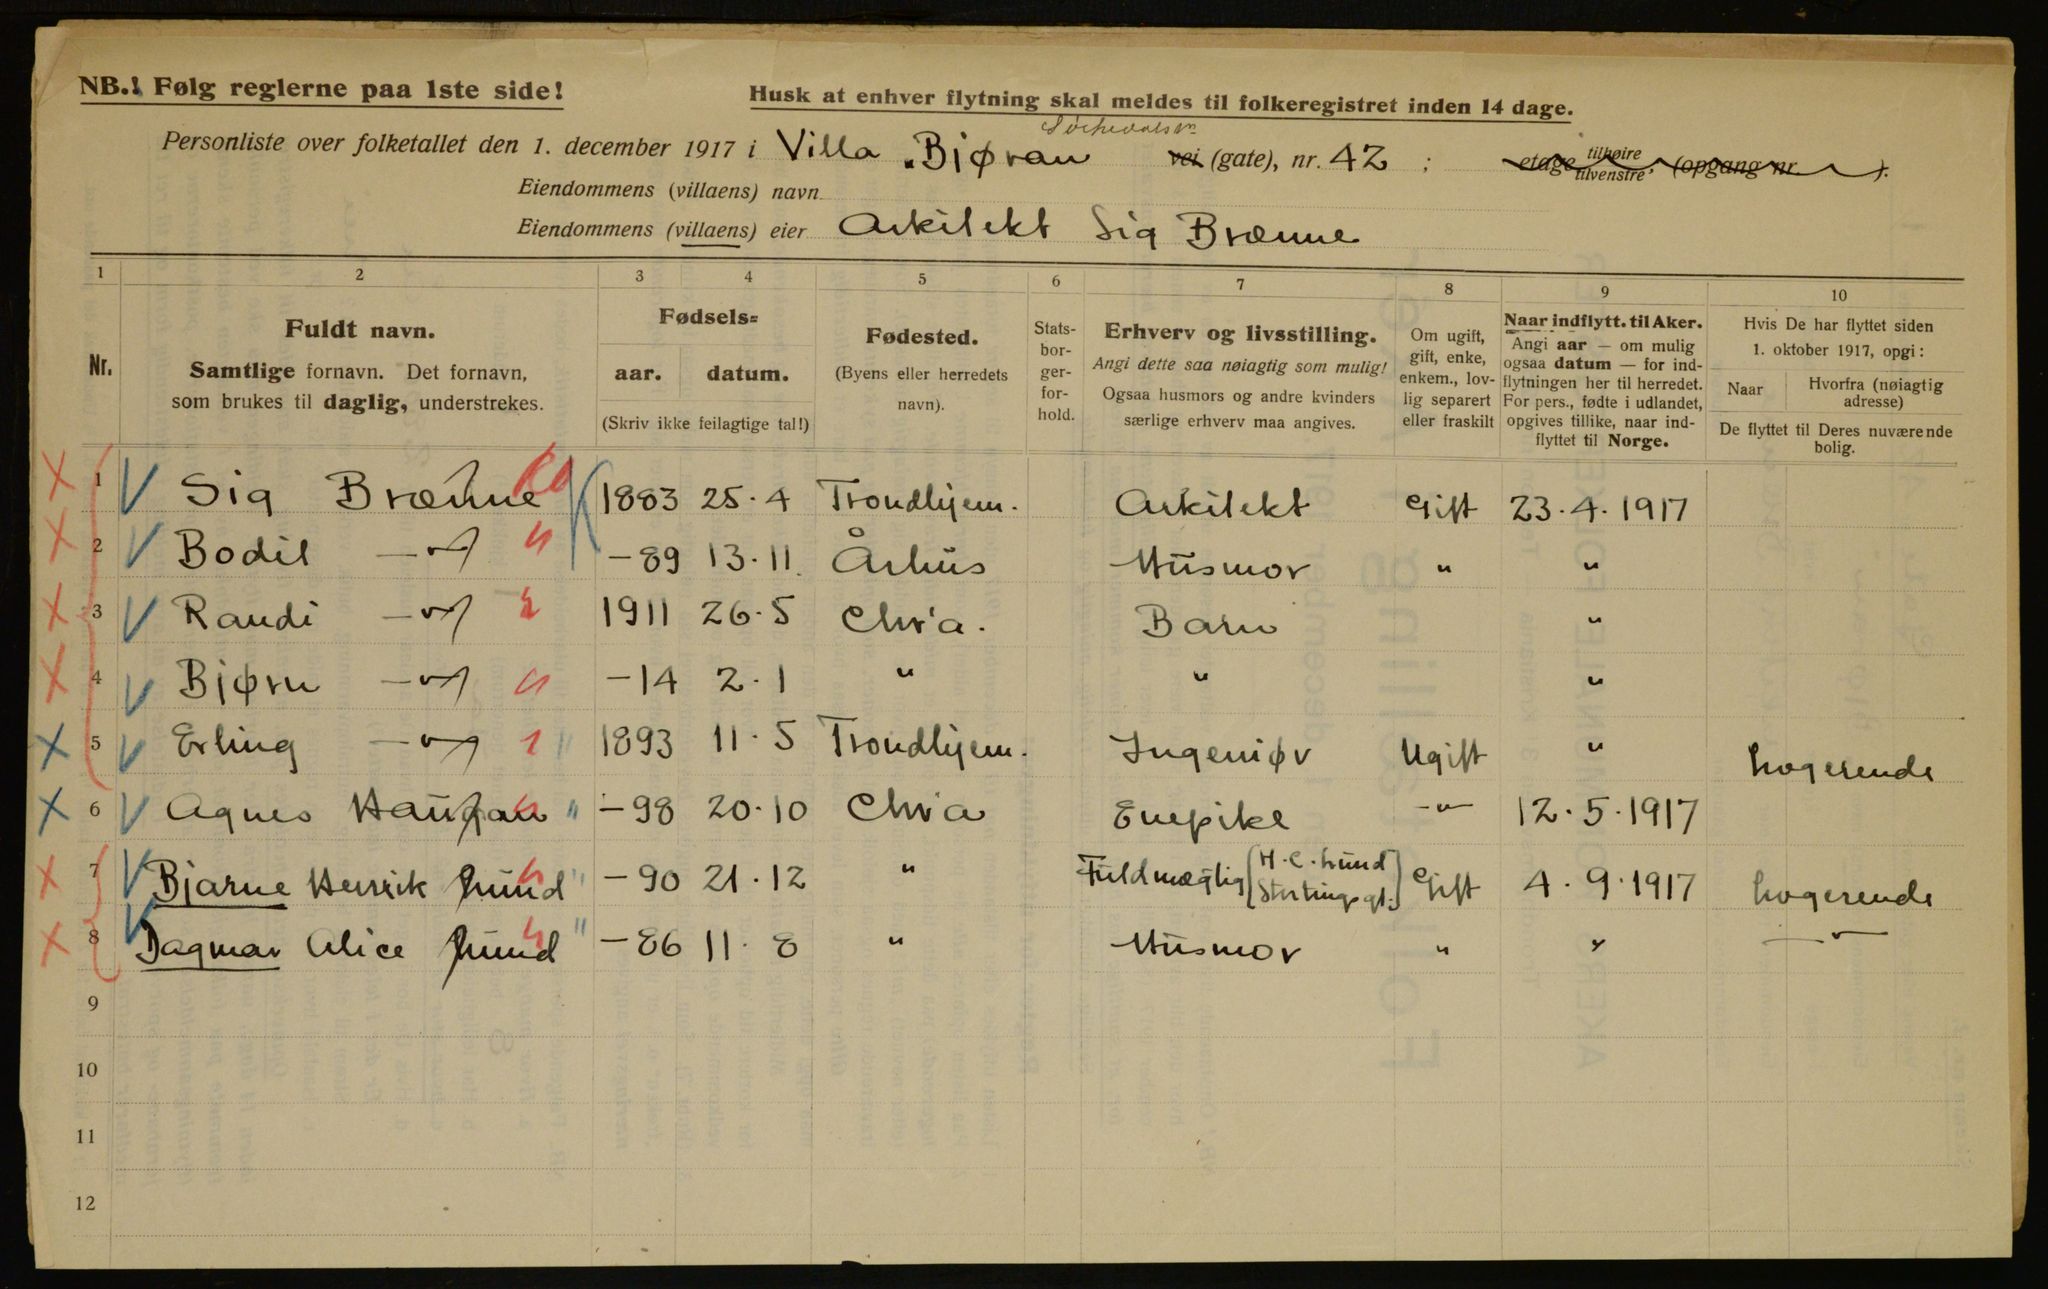 NB.! Følg reglerne paa 1ste side!
Husk at enhver flytning skal meldes til folkeregistret inden 14 dage.
Personliste over folketallet den 1. december 1917 i Villa "Bjøran vei (gate), nr. 42 ; etage tilhøire tilvenstre, (opgang nr. ).
Eiendommens (villaens) navn
Eiendommens (villaens) eier Arkitekt Sig Brænne
1 2 3 4 5 6 7 8 9 10
Nr.
Fuldt navn.
Samtlige fornavn. Det fornavn,
som brukes til daglig, understrekes.
Fødsels=
aar. datum.
(Skriv ikke feilagtige tal!)
Fødested.
(Byens eller herredets
navn).
Stats-
bor-
ger-
for-
hold.
Erhverv og livsstilling.
Angi dette saa nøiagtig som mulig!
Ogsaa husmors og andre kvinders
særlige erhverv maa angives.
Om ugift,
gift, enke,
enkem., lov-
lig separert
eller fraskilt
Naar indflytt. til Aker.
Angi aar — om mulig
ogsaa datum — for ind-
flytningen her til herredet.
For pers., fødte i udlandet,
opgives tillike, naar ind-
flyttet til Norge.
Hvis De har flyttet siden
1. oktober 1917, opgi:
Naar
Hvorfra (nøiagtig
adresse)
De flyttet til Deres nuværende
bolig.
1 Sig Brænne 1883 25.4 Trondhjem. Arkitekt Gift 23.4.1917
2 Bodil —"— -89 13.11. Århus Husmor " "
3 Randi —"— 1911 26.5 Chr'a. Barn "
4 Bjørn —"— -14 2.1 " " "
5 Erling —"— 1893 11.5 Trondhjem. Ingeniør Ugift " Logerende
6 Agnes Haugan -98 20.10 Chr'a Enepike —"— 12.5.1917
7 Bjarne Henrik Lund -90 21.12 " Fuldmægtig [H.C. Lund Stortingsgt.] Gift 4.9.1917 Logerende
8 Dagmar Alice Lund -86 11.8 " Husmor " " —"—
9
10
11
12